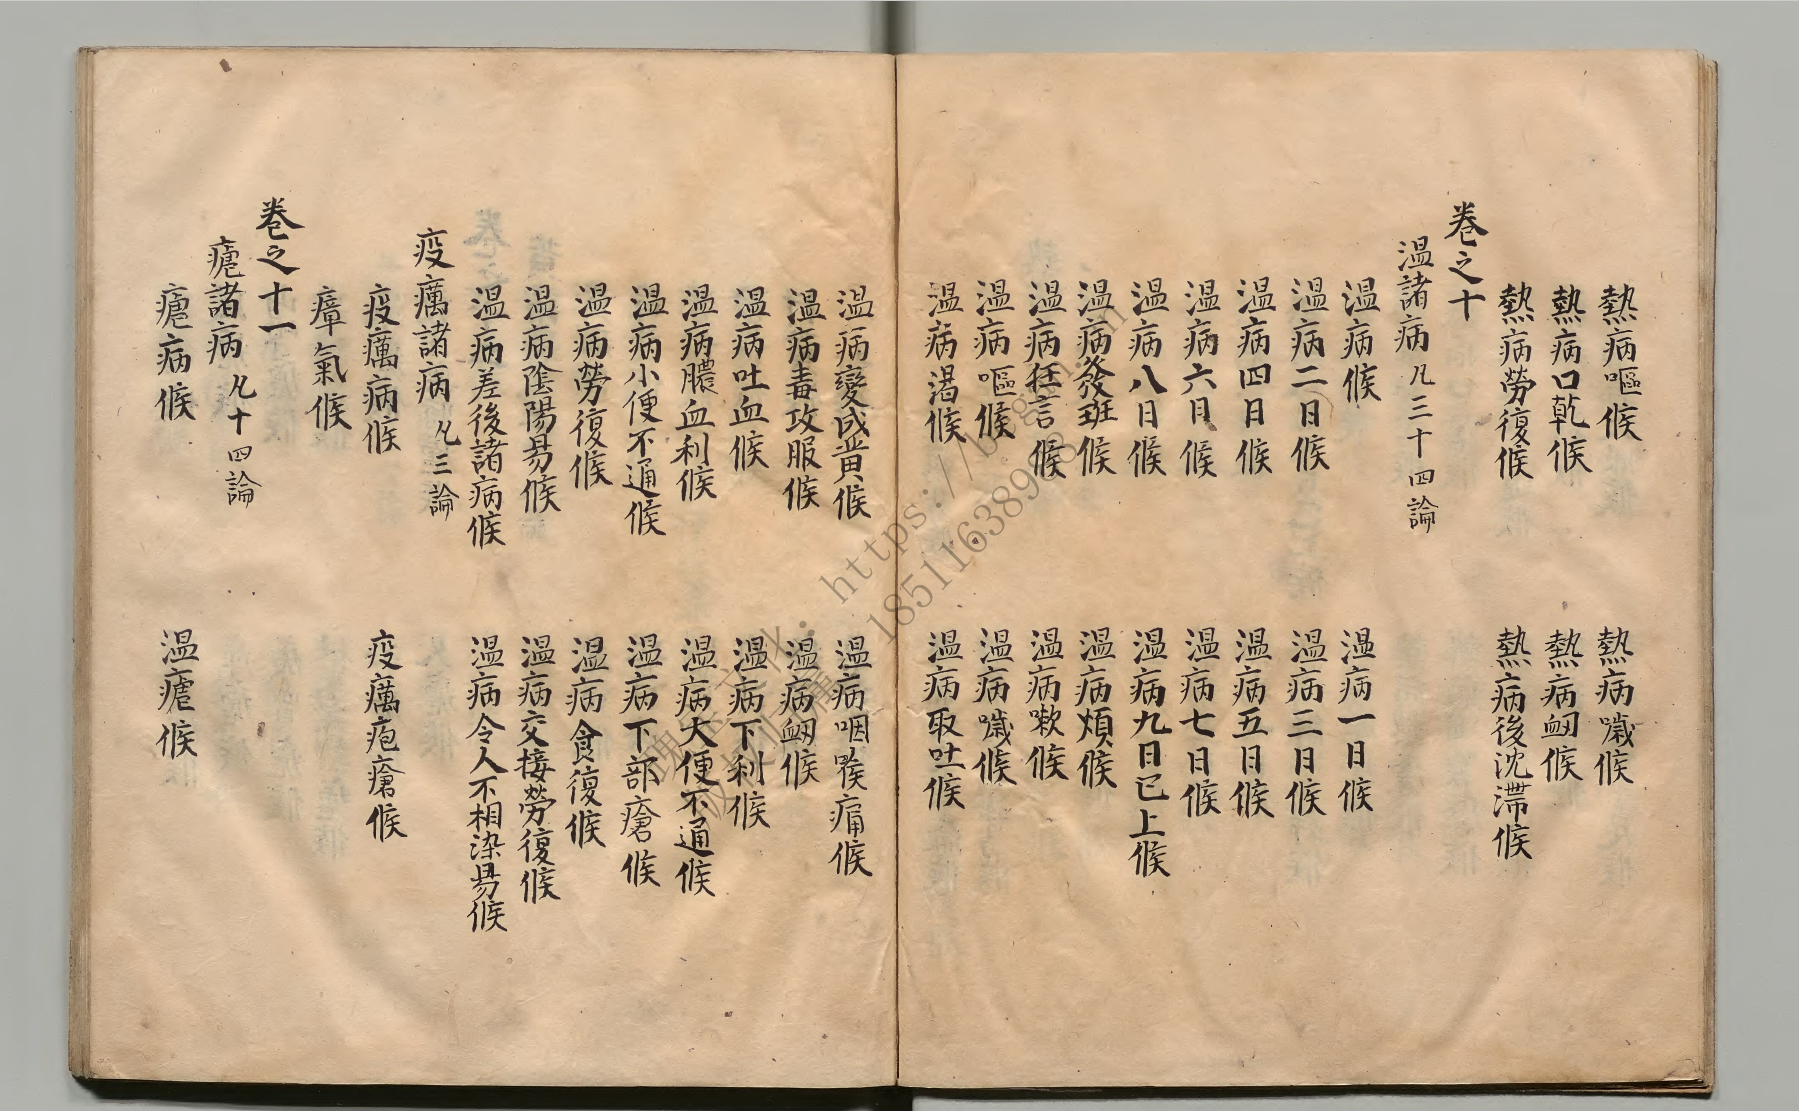 熱病嘔候　熱病噦候
熱病口乾候　熱病衂候
熱病勞復候　熱病後沈滯候
卷之十
温諸病 凡三十四論
温病候　温病一日候
温病二日候　温病三日候
温病四日候　温病五日候
温病六日候　温病七日候
温病八日候　温病九日已上候
温病發班候　温病煩候
温病狂言候　温病嗽候
温病嘔候　温病噦候
温病渇候　温病取吐候
温病變成黄候　温病咽喉痛候
温病毒攻服候　温病衂候
温病吐血候　温病下利候
温病膿血利候　温病大便不通候
温病小便不通候　温病下部瘡候
温病勞復候　温病食復候
温病陰陽易候　温病交接勞復候
温病差後諸病候　温病令人不相染易候
疫癘諸病 凡三論
疫癘病候　疫癘疱瘡候
瘴氣候
卷之十一
瘧諸病 凡十四論
瘧病候　温瘧候
https://
18511638983